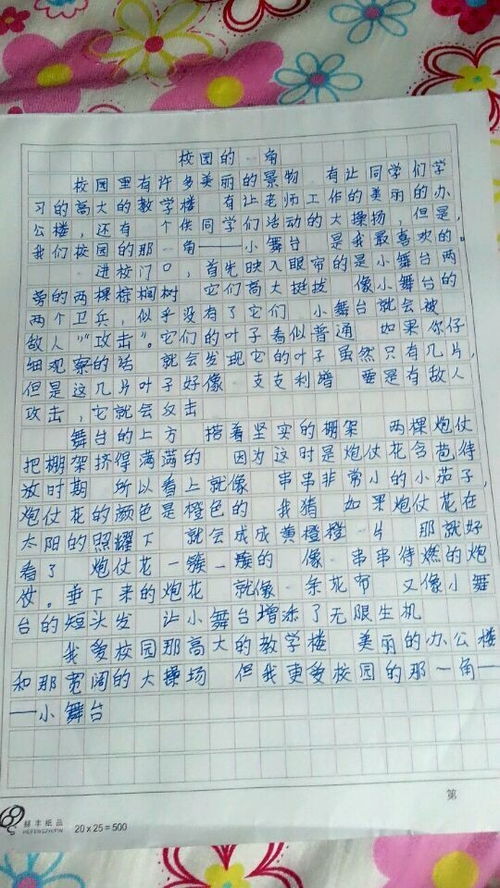 校园的一角
校园里有许多美丽的景物 有让同学们学
习的高大的教学楼 有让老师工作的美丽的办
公楼，还有 个供同学们活动的大操场，但是，
我们校园的那一角——小舞台 是我最喜欢的。
一进校门口，首先映入眼帘的是小舞台两
旁的两棵棕榈树 它们高大挺拔 像小舞台的
两个卫兵，似乎没有了它们 小舞台就会被
敌人“攻击”。它们的叶子看似普通 如果你仔
细观察的话 就会发现它的叶子虽然只有几片，
但是这几片叶子好像 支支利 要是有敌人
攻击，它就会攻击
舞台的上方 搭着坚实的棚架 两棵炮仗
把棚架挤得满满的 因为这时是炮仗花含苞待
放时期 所以看上就像 串串非常小的小茄子，
炮仗花的颜色是橙色的 我猜 如果炮仗花在
太阳的照耀下 就会成成黄橙橙一片 那就好
看了 炮仗花一簇一簇的 像一串串待燃的炮
仗。垂下来的炮花 就像一条花布 又像小舞
台的短头发 让小舞台增添了无限生机
我爱校园那高大的教学楼 美丽的办公楼
和那宽阔的大操场 但我更爱校园的那一角—
—小舞台
第
丰纸品
20×25=500